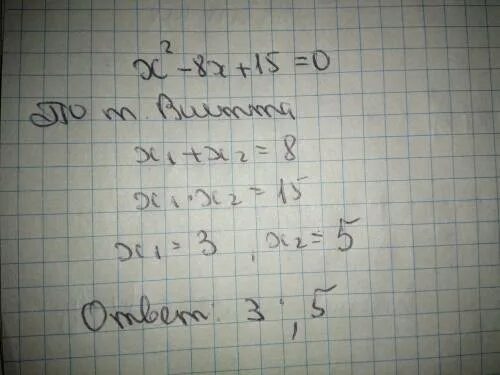 x² - 8x + 15 = 0
По т. Виетта
x₁ + x₂ = 8
x₁ · x₂ = 15
x₁ = 3, x₂ = 5
Ответ: 3; 5